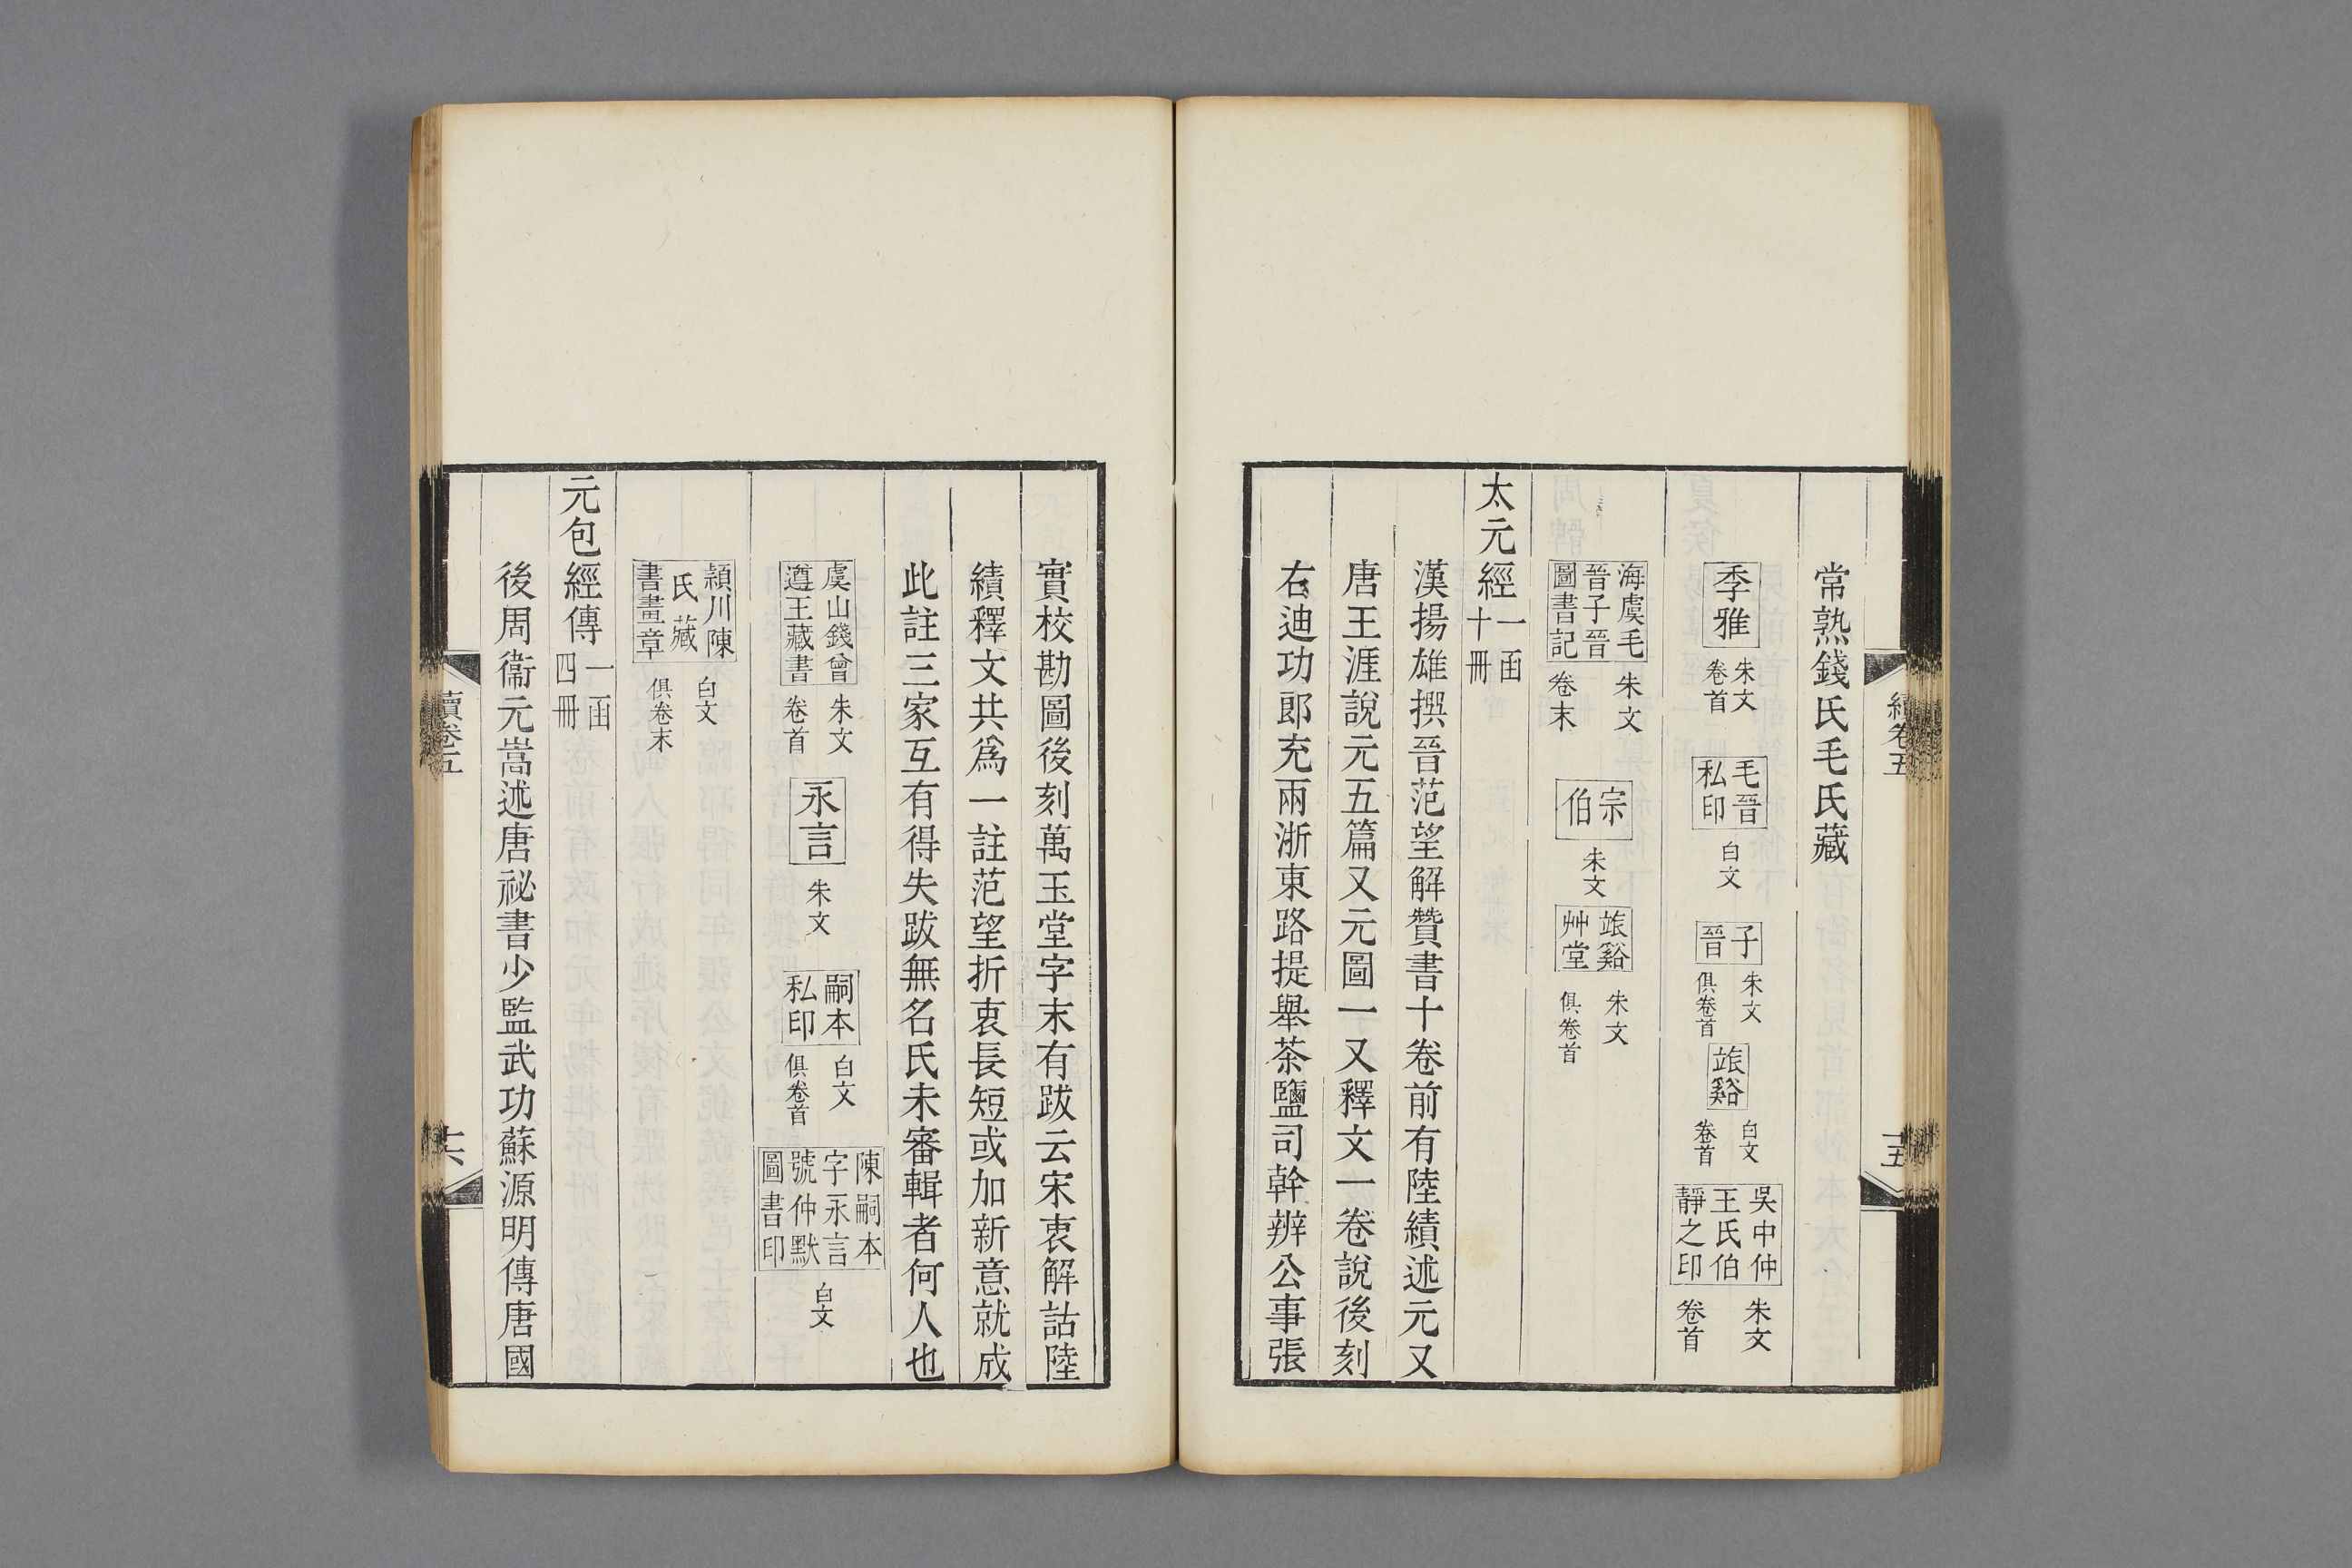 常熟錢氏毛氏藏
季雅 朱文卷首 毛晉私印 白文 子晉 朱文俱卷首 䇓谿 白文卷首 吳中仲王氏伯靜之印 朱文卷首
海虞毛晉子晉圖書記 朱文卷末 宗伯 朱文 䇓谿艸堂 朱文俱卷首
太元經 一函十冊
漢揚雄撰晉范望解贊書十卷前有陸績述元又
唐王涯說元五篇又元圖一又釋文一卷說後刻
右迪功郎充兩浙東路提舉茶鹽司幹辨公事張
續卷五
十五
實校勘圖後刻萬玉堂字末有跋云宋衷解詁陸
績釋文共為一註范望折衷長短或加新意就成
此註三家互有得失跋無名氏未審輯者何人也
虞山錢曾遵王藏書 朱文卷首 永言 朱文 嗣本私印 白文俱卷首 陳嗣本字永言號仲默圖書印 白文
潁川陳氏藏書畫章 白文俱卷末
元包經傳 一函四冊
後周衞元嵩述唐祕書少監武功蘇源明傳唐國
續卷五
十六